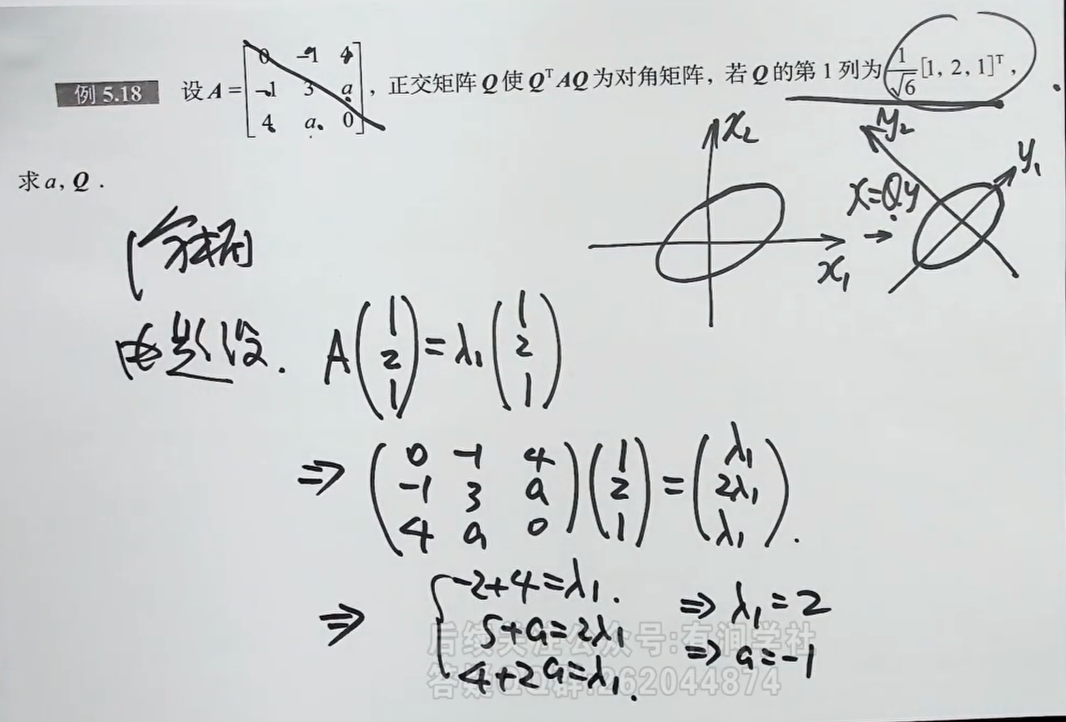 例 5.18 设 A = [0 -1 4; -1 3 a; 4 a 0], 正交矩阵 Q 使 QᵀAQ 为对角矩阵, 若 Q 的第 1 列为 1/√6 [1, 2, 1]ᵀ,
求 a, Q .
x₂
y₂
y₁
x=Qy
→
x₁
由题设. A(1 2 1) = λ₁(1 2 1)
⇒ (0 -1 4; -1 3 a; 4 a 0)(1 2 1) = (λ₁ 2λ₁ λ₁).
⇒ { -2+4=λ₁. ⇒ λ₁=2
5+a=2λ₁ ⇒ a=-1
4+2a=λ₁.
后续关注公众号:有涧学社
答疑QQ群:262044874